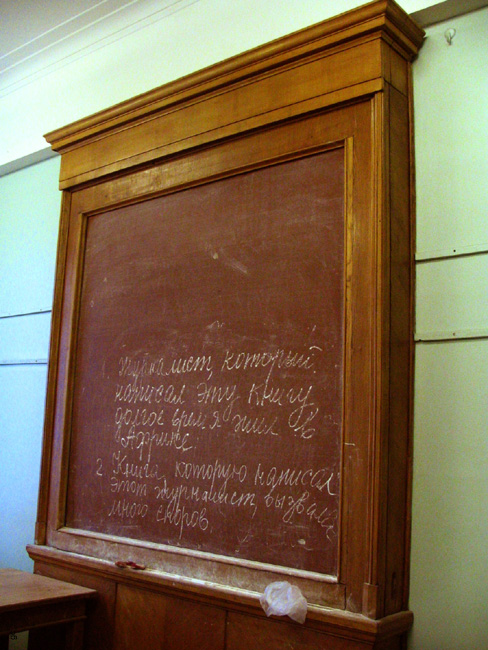 1. Журналист, который
написал эту книгу
долгое время жил в
Африке.
2. Книга, которую написал
этот журналист, вызвала
много споров.